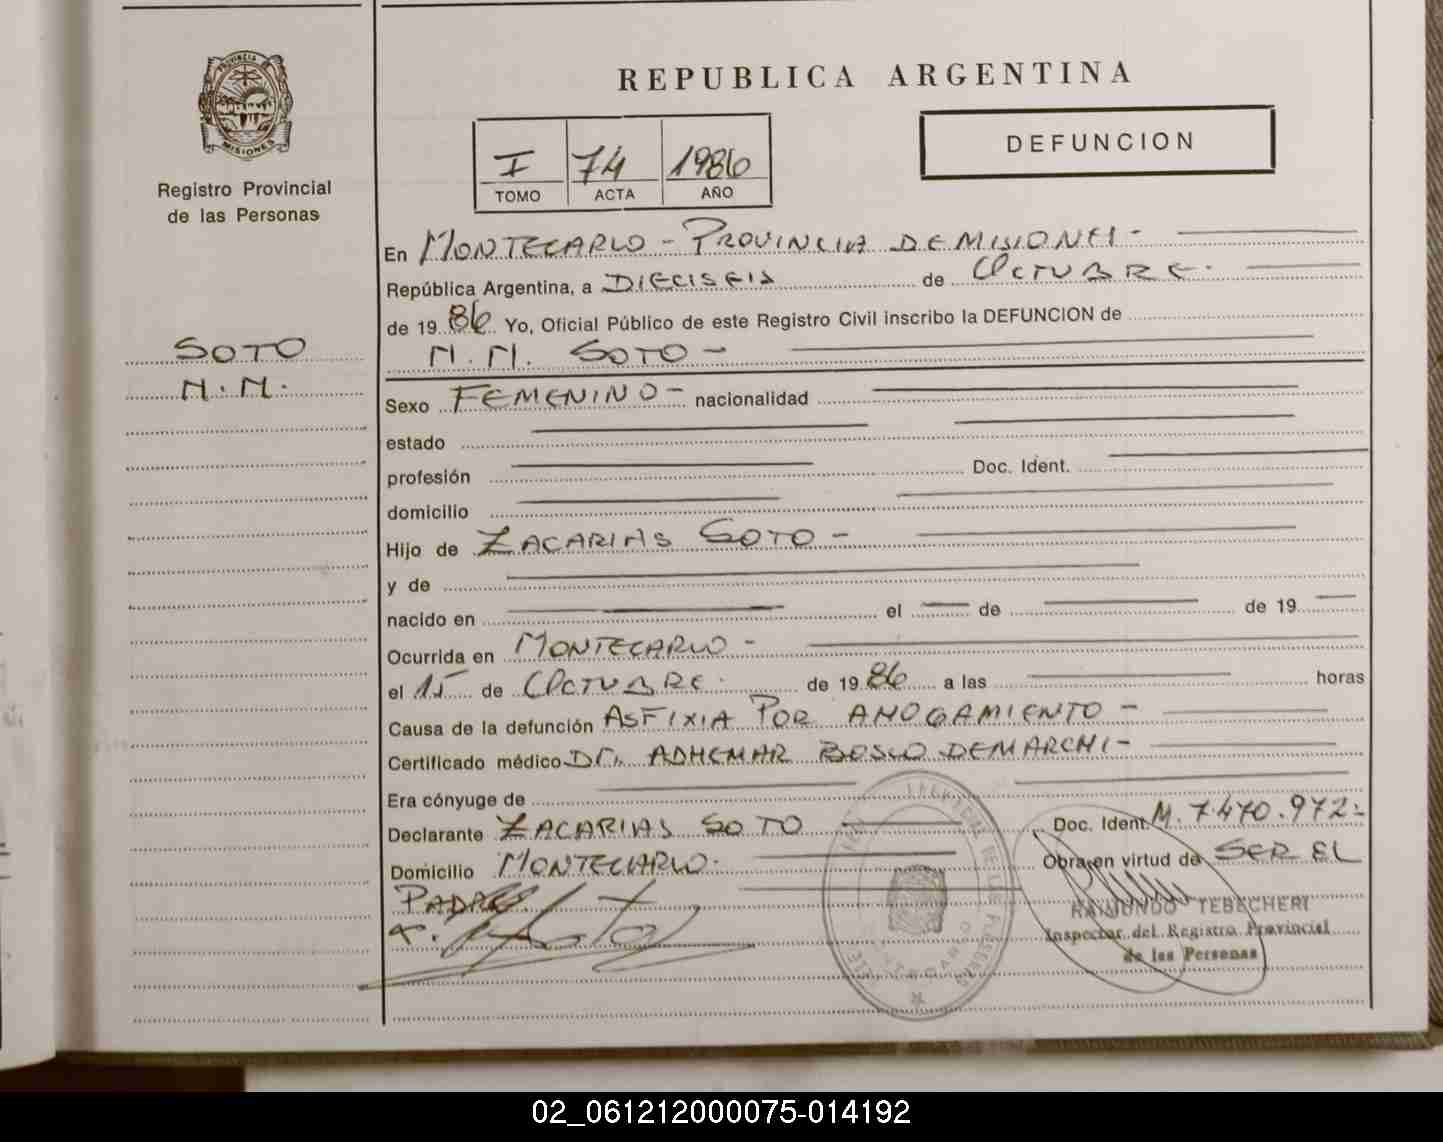 PROVINCIA DE
MISIONES
Registro Provincial
de las Personas
SOTO
N.N.
REPUBLICA ARGENTINA
I 74 1986
TOMO ACTA AÑO
DEFUNCION
En MONTECARLO - PROVINCIA DE MISIONES -
República Argentina, a DIECISEIS de OCTUBRE.
de 19 86 Yo, Oficial Público de este Registro Civil inscribo la DEFUNCION de
N.N. SOTO -
Sexo FEMENINO - nacionalidad
estado
profesión Doc. Ident.
domicilio
Hijo de ZACARIAS SOTO -
y de
nacido en el de de 19
Ocurrida en MONTECARLO -
el 15 de OCTUBRE. de 19 86 a las horas
Causa de la defunción ASFIXIA POR AHOGAMIENTO -
Certificado médico Dr. ADHEMAR BOSCO DEMARCHI -
Era cónyuge de
Declarante ZACARIAS SOTO Doc. Ident. M. 7.470.972-
Domicilio MONTECARLO. Obra en virtud de SER EL
PADRE.
RAIMUNDO TEBECHERI
Inspector del Registro Provincial
de las Personas
02_061212000075-014192